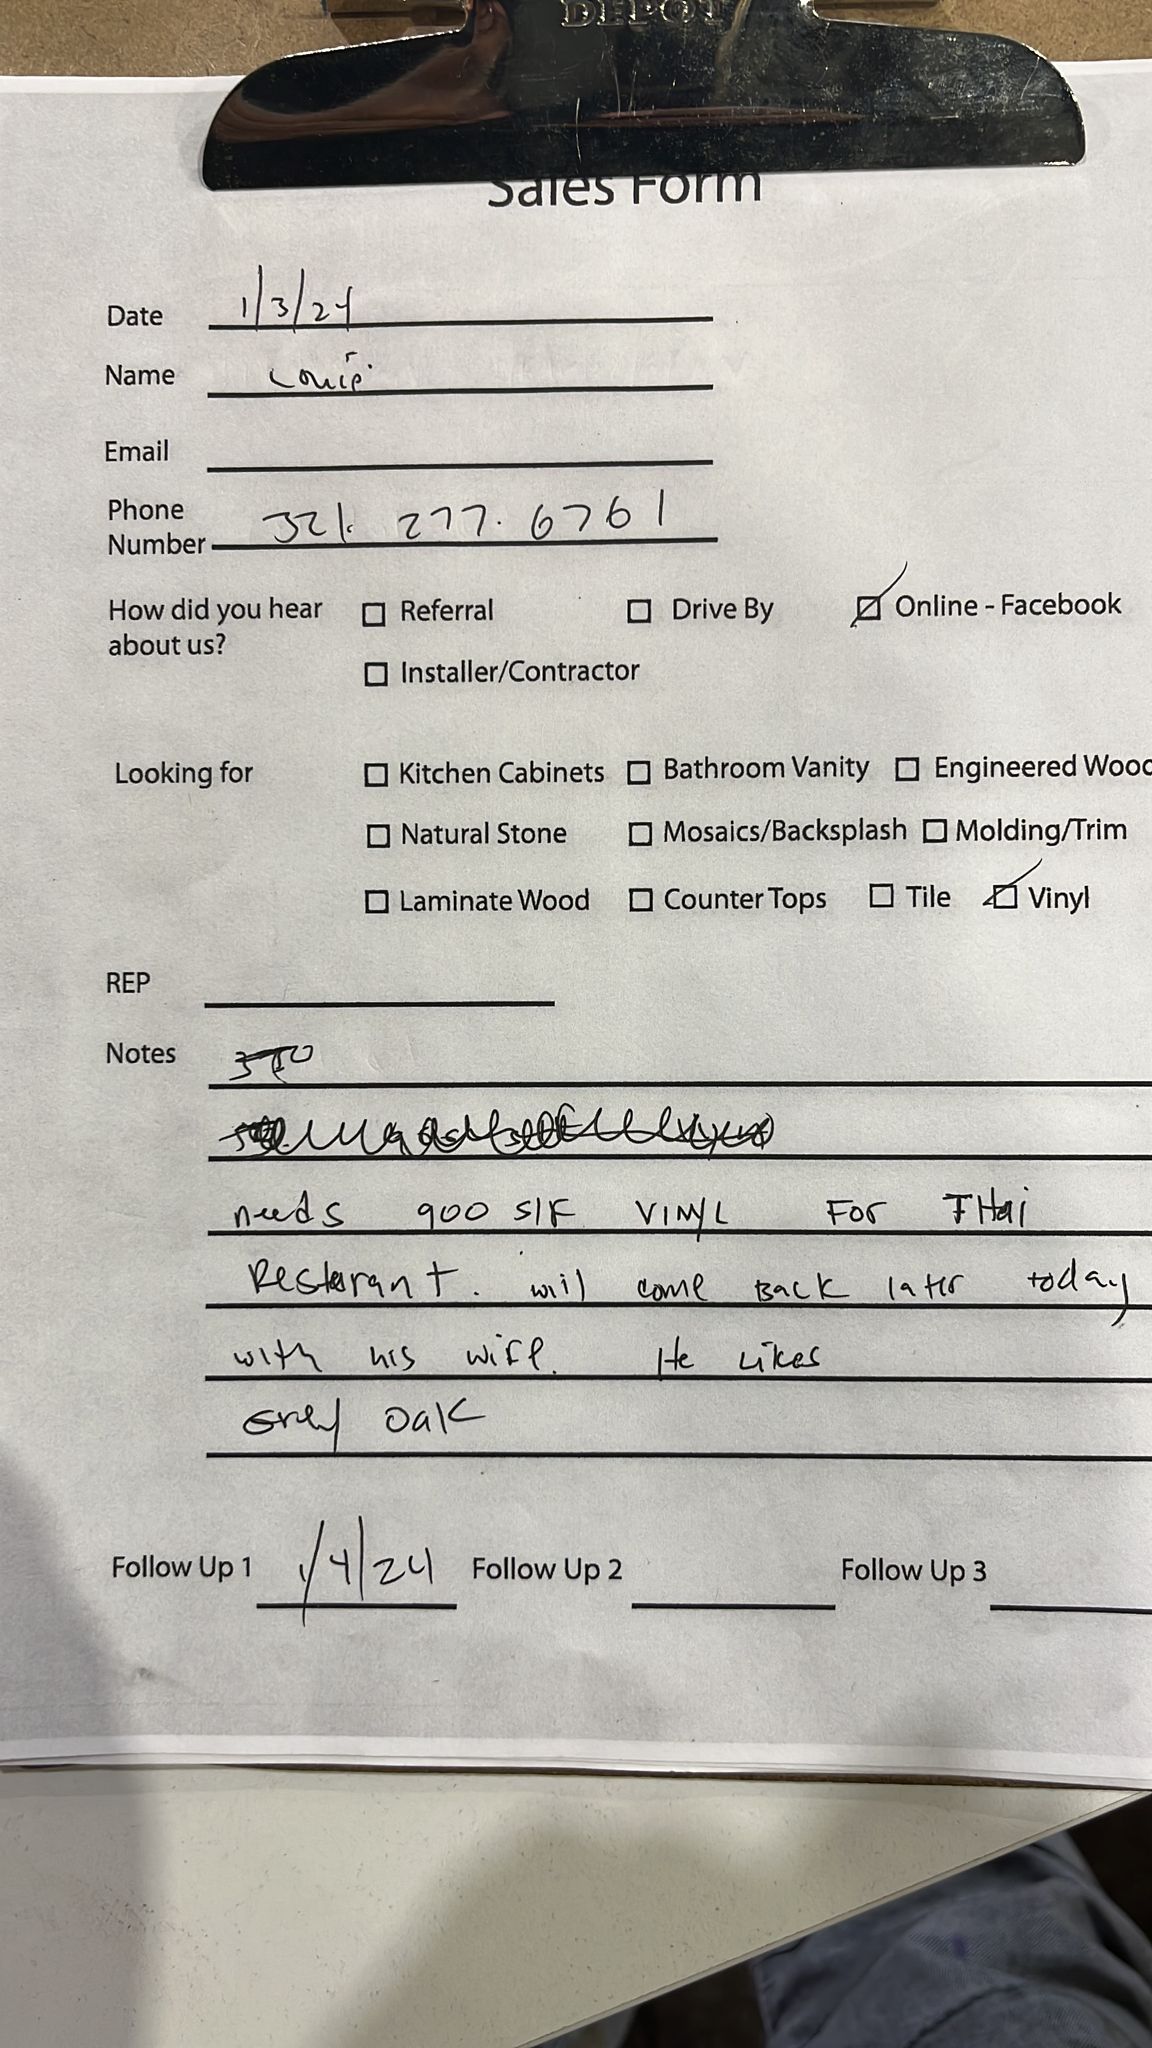 DEPOT
Sales Form
Date 1/3/24
Name Louie
Email
Phone
Number 321. 277. 6761
How did you hear
about us?
Referral Drive By Online - Facebook
Installer/Contractor
Looking for
Kitchen Cabinets Bathroom Vanity Engineered Wood
Natural Stone Mosaics/Backsplash Molding/Trim
Laminate Wood Counter Tops Tile Vinyl
REP
Notes
needs 900 S/F VINYL For THai
Resterant. will come Back later today
with his wife. He Likes
Grey Oak
Follow Up 1 1/4/24 Follow Up 2 Follow Up 3